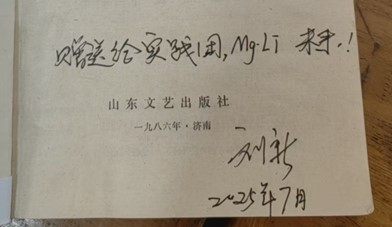 赠送给实践团，Mg-Li 未来！
山东文艺出版社
一九八六年·济南
刘新
2025年7月